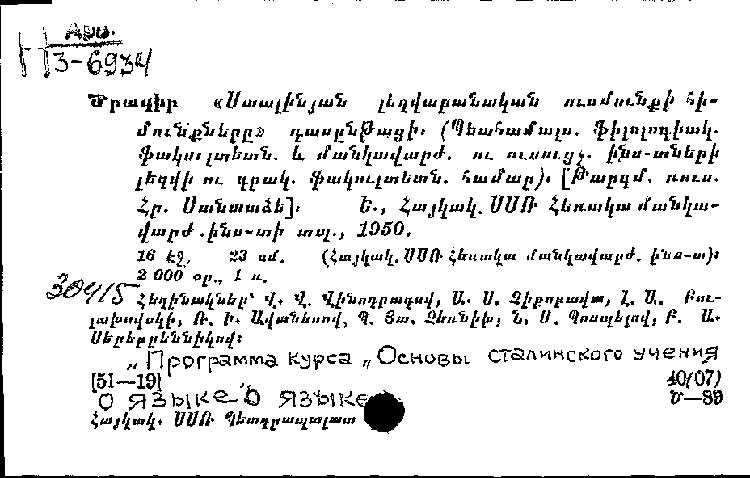 Арм.
3-6934
Ծրագիր «Ստալինյան լեզվաբանական ուսմունքի հի-
մունքները» դասընթացի։ (Պետհամալս. ֆիլոլոգիակ.
ֆակուլտետն. և մանկավարժ. ու ուսուցչ. ինս-տների
լեզվի ու գրակ. ֆակուլտետն. համար)։ [Թարգմ. ռուս.
Հր. Մանասաձե]։ Ե., Հայկակ. ՍՍՌ Հեռակա մանկա-
վարժ. ինս-տի տպ., 1950.
16 էջ, 23 սմ. (Հայկակ. ՍՍՌ հեռակա մանկավարժ. ինս-տ)։
2 000 օր., 1 ռ.
30415 Հեղինակներ՝ Վ. Վ. Վինոգրադով, Ա. Ս. Չիքոբավա, Լ. Ա. Բու-
լախովսկի, Ռ. Ի. Ավանեսով, Պ. Յա. Չեռնիխ, Ն. Ս. Պոսպելով, Բ. Ա.
Սերեբրեննիկով։
„Программа курса „Основы сталинского учения
[51—19] 40(07)
о языке о языке Ծ—89
Հայկակ. ՍՍՌ Պետգրապալատ